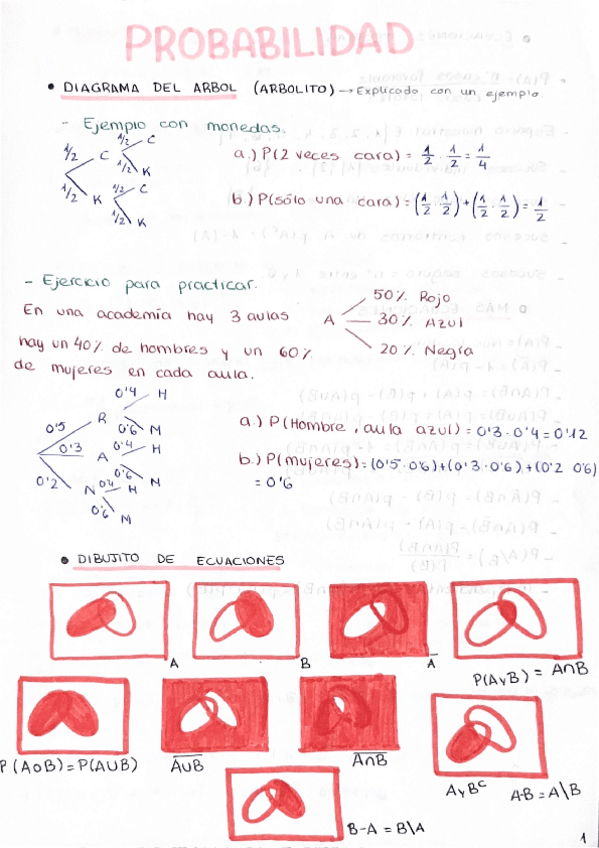 PROBABILIDAD
• DIAGRAMA DEL ARBOL (ARBOLITO) → Explicado con un ejemplo.
- Ejemplo con monedas.
1/2 C 1/2 C
1/2 K
1/2 K 1/2 C
1/2 K
a.) P(2 veces cara) = 1/2 · 1/2 = 1/4
b.) P(sólo una cara) = (1/2 · 1/2) + (1/2 · 1/2) = 1/2
- Ejercicio para practicar.
En una academia hay 3 aulas
hay un 40% de hombres y un 60%
de mujeres en cada aula.
A
50% Rojo
30% Azul
20% Negra
0'5 R 0'4 H
0'6 M
0'3 A 0'4 H
0'6 M
0'2 N 0'4 H
0'6 M
a.) P(Hombre, aula azul) = 0'3 · 0'4 = 0'12
b.) P(mujeres) = (0'5 · 0'6) + (0'3 · 0'6) + (0'2 0'6)
= 0'6
• DIBUJITO DE ECUACIONES
A
B
A̅
P(A y B) = A∩B
P(A o B) = P(A∪B)
A̅∪̅B̅
A̅∩̅B̅
A y Bᶜ A-B = A\B
B-A = B\A
1